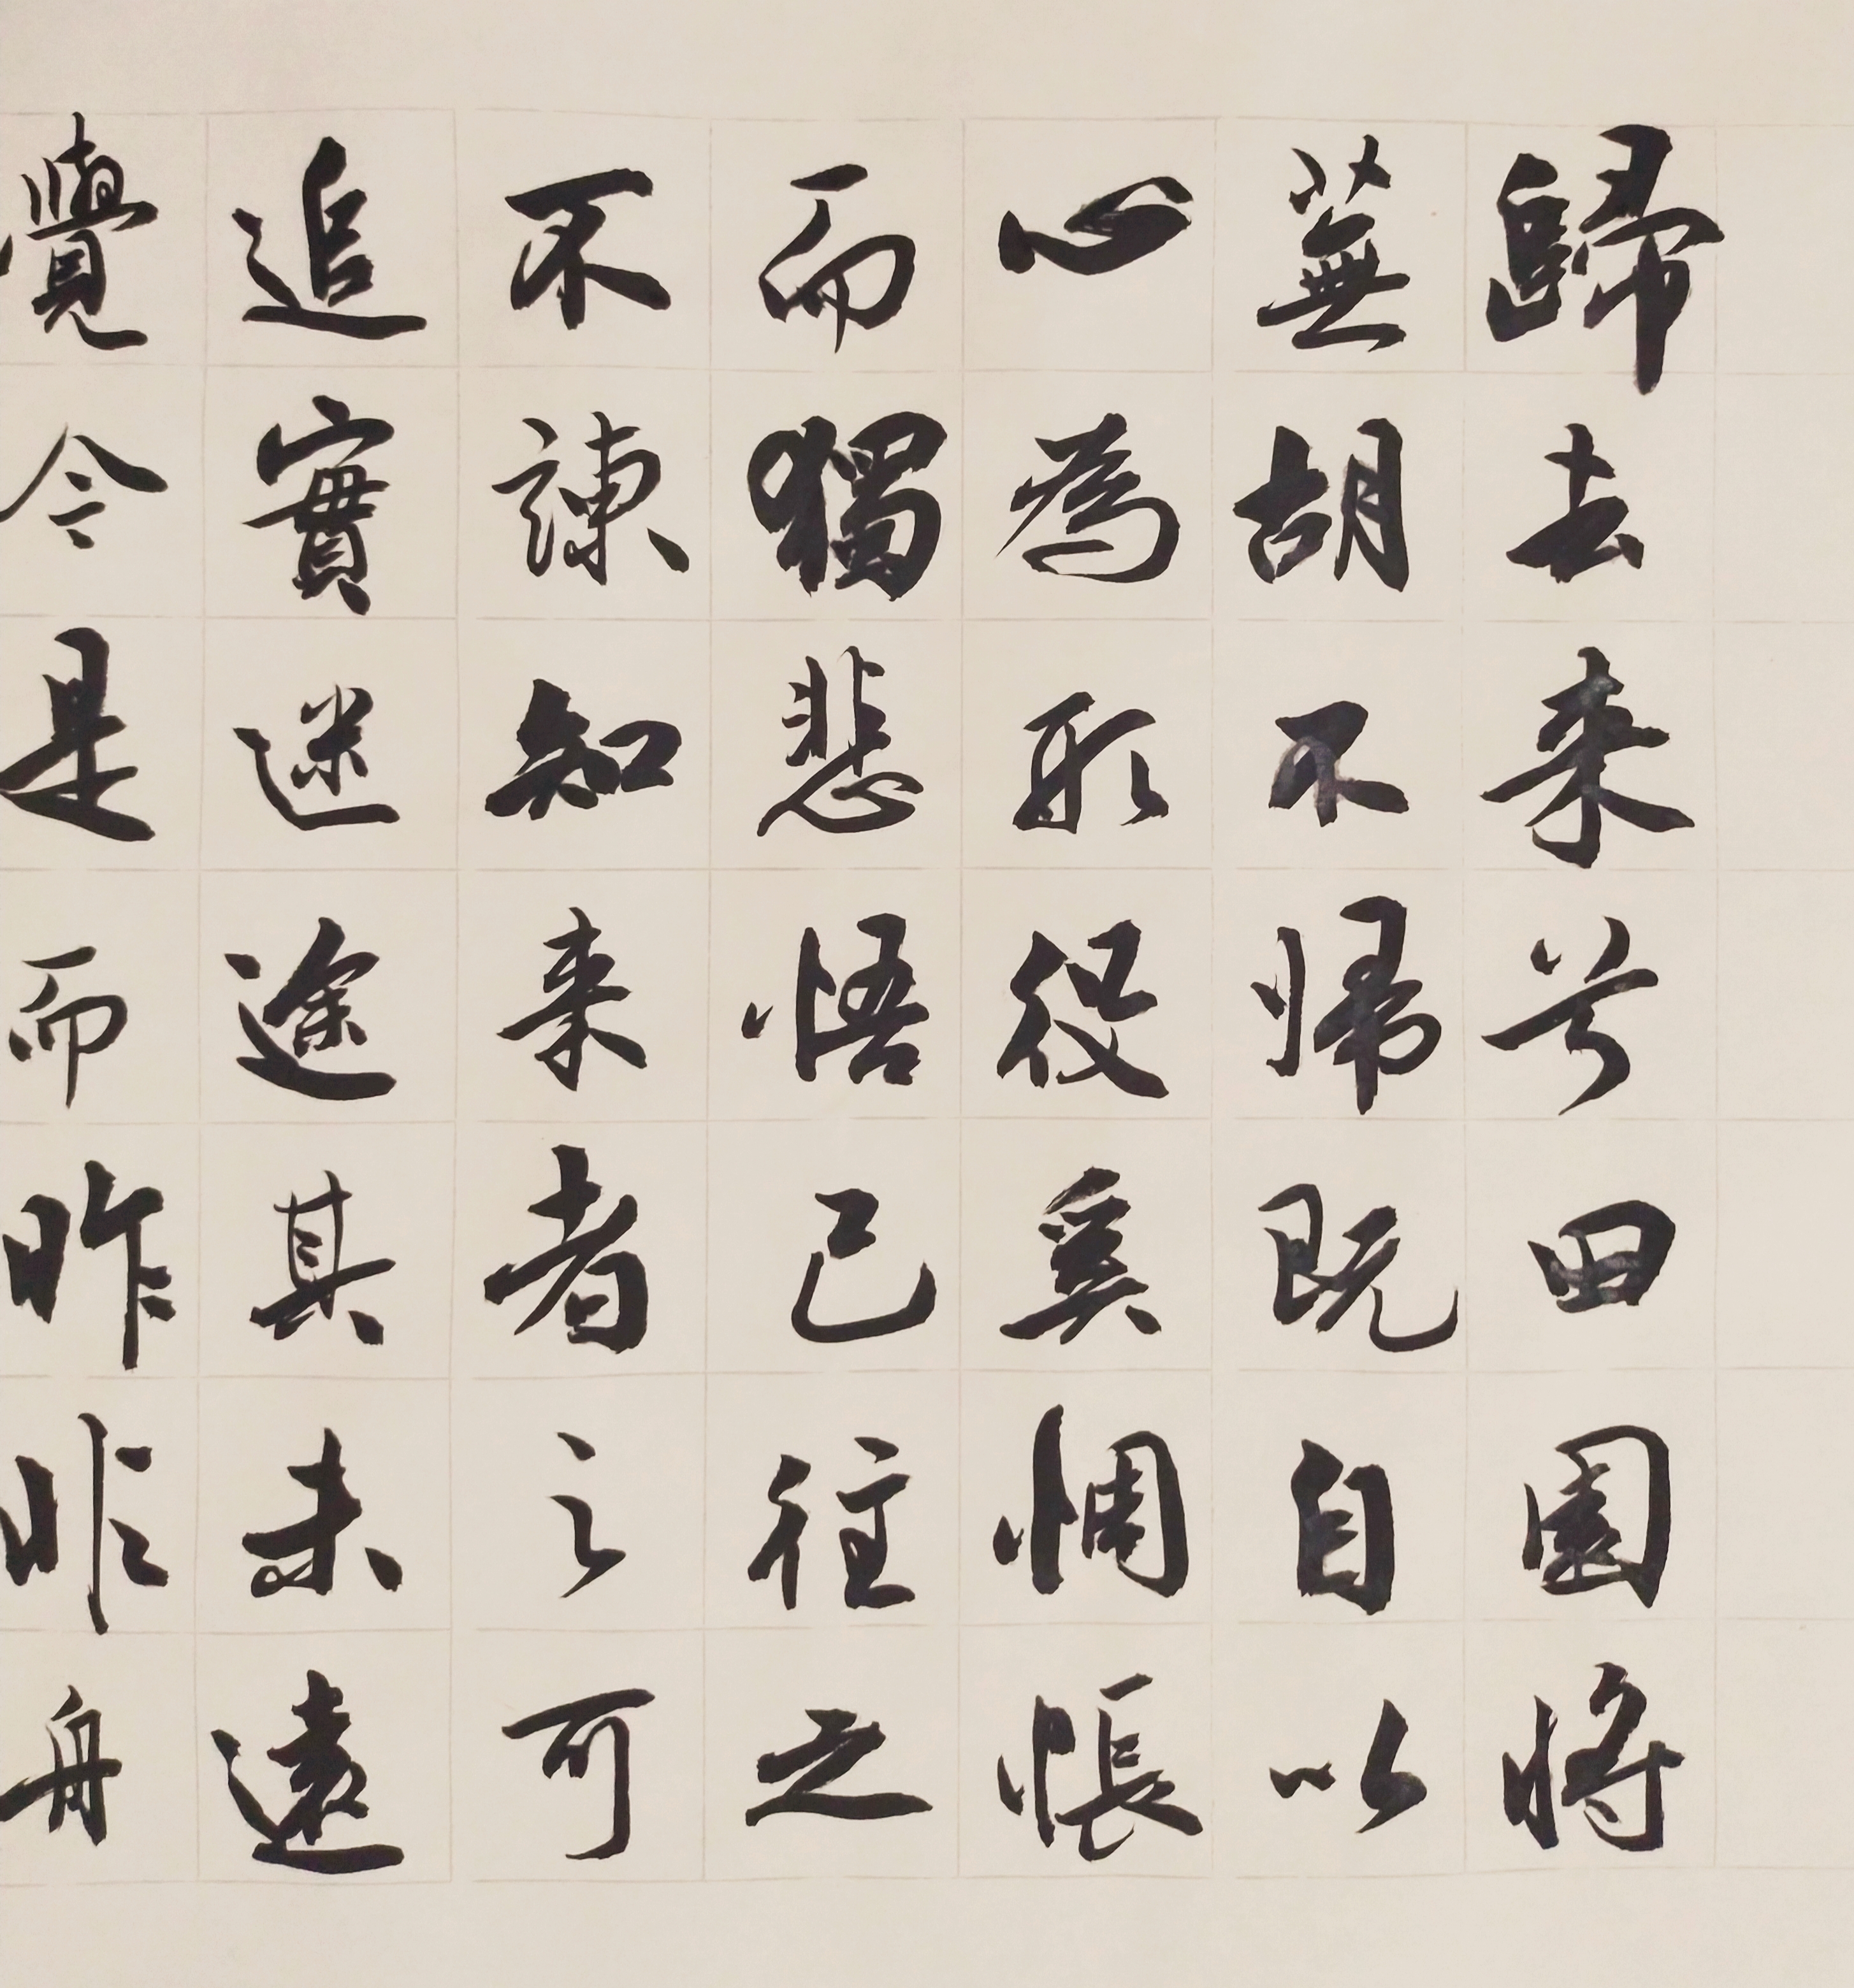 歸去来兮田園將
蕪胡不帰既自以
心為形役奚惆悵
而獨悲悟已往之
不諫知来者之可
追實迷途其未遠
覺今是而昨非舟